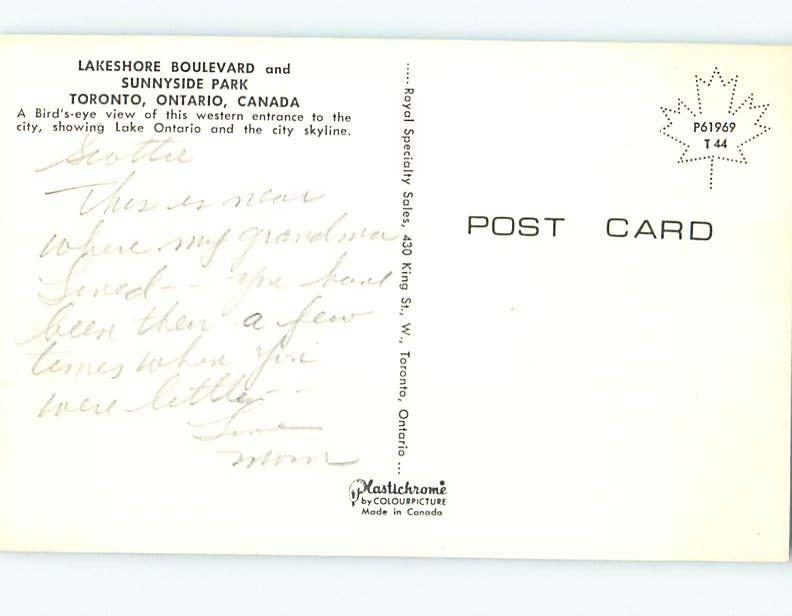 LAKESHORE BOULEVARD and
SUNNYSIDE PARK
TORONTO, ONTARIO, CANADA
A Bird's-eye view of this western entrance to the
city, showing Lake Ontario and the city skyline.
Scottie
This is near
where my grandma
Lived - - You have
been then a few
times when you
were little - -
Love
Mom
.....Royal Specialty Sales, 430 King St., W., Toronto, Ontario ...
Plastichrome
by COLOURPICTURE
Made in Canada
P61969
T 44
POST CARD